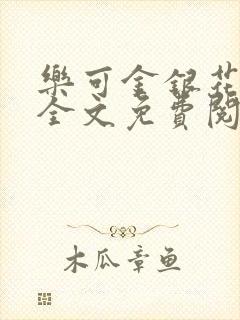 樂可金銀花
全文免費閱
木瓜章鱼